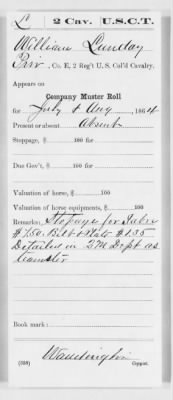 L | 2 Cav. | U.S.C.T.
William Lunday
Priv., Co. E, 2 Reg't U. S. Col'd Cavalry.
Appears on
Company Muster Roll
for July & Aug, 1864
Present or absent Absent
Stoppage, $ 100 for
Due Gov't, $ 100 for
Valuation of horse, $ 100
Valuation of horse equipments, $ 100
Remarks: Stopages for Sabre
$7.50. Belt & Plate $1.35
Detailed in Dept as
teamster
Book mark:
(358)
Copyist.